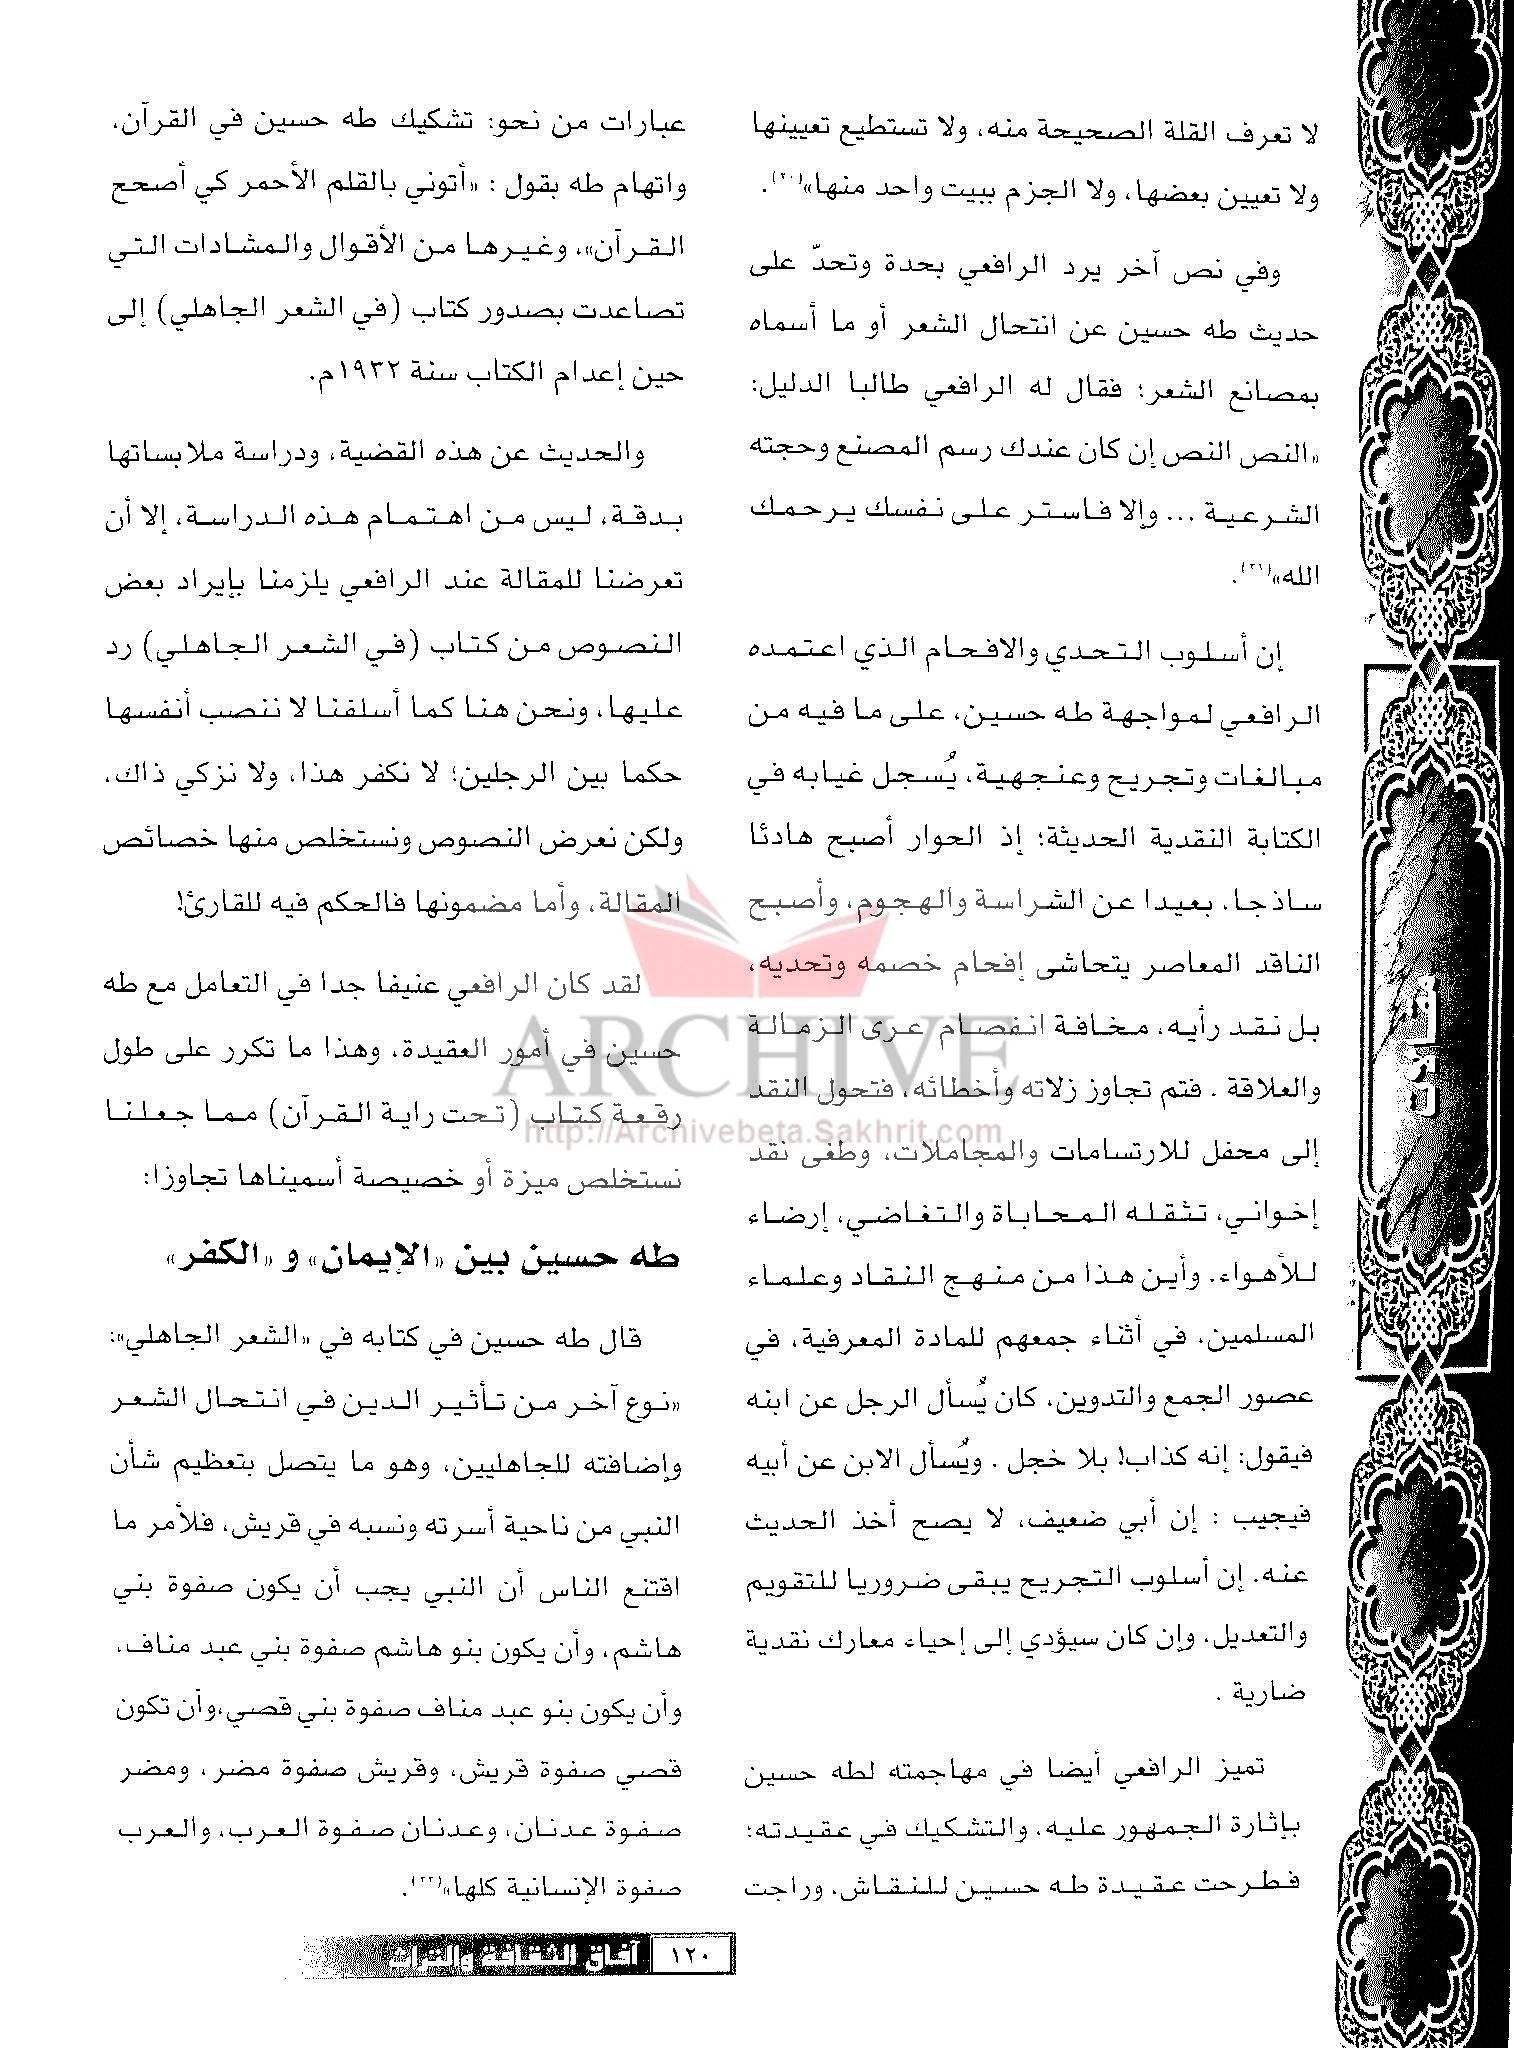 لا تعرف القلة الصحيحة منه، ولا تستطيع تعيينها
ولا تعيين بعضها، ولا الجزم ببيت واحد منها»(٢٠).
وفي نص آخر يرد الرافعي بحدة وتحدّ على
حديث طه حسين عن انتحال الشعر أو ما أسماه
بمصانع الشعر؛ فقال له الرافعي طالبا الدليل:
«النص النص إن كان عندك رسم المصنع وحجته
الشرعية ... وإلا فاستر على نفسك يرحمك
الله»(٢١).
إن أسلوب التحدي والافحام الذي اعتمده
الرافعي لمواجهة طه حسين، على ما فيه من
مبالغات وتجريح وعنجهية، يُسجل غيابه في
الكتابة النقدية الحديثة؛ إذ الحوار أصبح هادئا
ساذجا، بعيدا عن الشراسة والهجوم، وأصبح
الناقد المعاصر يتحاشى إفحام خصمه وتحديه،
بل نقد رأيه، مخافة انفصام عرى الزمالة
والعلاقة . فتم تجاوز زلاته وأخطائه، فتحول النقد
إلى محفل للارتسامات والمجاملات، وطغى نقد
إخواني، تثقله المحاباة والتغاضي، إرضاء
للأهواء. وأين هذا من منهج النقاد وعلماء
المسلمين، في أثناء جمعهم للمادة المعرفية، في
عصور الجمع والتدوين، كان يُسأل الرجل عن ابنه
فيقول: إنه كذاب! بلا خجل . ويُسأل الابن عن أبيه
فيجيب : إن أبي ضعيف، لا يصح أخذ الحديث
عنه. إن أسلوب التجريح يبقى ضروريا للتقويم
والتعديل، وإن كان سيؤدي إلى إحياء معارك نقدية
ضارية .
تميز الرافعي أيضا في مهاجمته لطه حسين
بإثارة الجمهور عليه، والتشكيك في عقيدته؛
فطرحت عقيدة طه حسين للنقاش، وراجت
عبارات من نحو: تشكيك طه حسين في القرآن،
واتهام طه بقول : «أتوني بالقلم الأحمر كي أصحح
القرآن»، وغيرها من الأقوال والمشادات التي
تصاعدت بصدور كتاب (في الشعر الجاهلي) إلى
حين إعدام الكتاب سنة ١٩٣٢م.
والحديث عن هذه القضية، ودراسة ملابساتها
بدقة، ليس من اهتمام هذه الدراسة، إلا أن
تعرضنا للمقالة عند الرافعي يلزمنا بإيراد بعض
النصوص من كتاب (في الشعر الجاهلي) رد
عليها، ونحن هنا كما أسلفنا لا ننصب أنفسها
حكما بين الرجلين؛ لا نكفر هذا، ولا نزكي ذاك،
ولكن نعرض النصوص ونستخلص منها خصائص
المقالة، وأما مضمونها فالحكم فيه للقارئ!
لقد كان الرافعي عنيفا جدا في التعامل مع طه
حسين في أمور العقيدة، وهذا ما تكرر على طول
رقعة كتاب (تحت راية القرآن) مما جعلنا
نستخلص ميزة أو خصيصة أسميناها تجاوزا:
طه حسين بين «الإيمان» و «الكفر»
قال طه حسين في كتابه في «الشعر الجاهلي»:
«نوع آخر من تأثير الدين في انتحال الشعر
وإضافته للجاهليين، وهو ما يتصل بتعظيم شأن
النبي من ناحية أسرته ونسبه في قريش، فلأمر ما
اقتنع الناس أن النبي يجب أن يكون صفوة بني
هاشم، وأن يكون بنو هاشم صفوة بني عبد مناف،
وأن يكون بنو عبد مناف صفوة بني قصي،وأن تكون
قصي صفوة قريش، وقريش صفوة مضر، ومضر
صفوة عدنان، وعدنان صفوة العرب، والعرب
صفوة الإنسانية كلها»(٢٢).
مقالات
ARCHIVE
http://Archivebeta.Sakhrit.com
١٢٠ آفاق الثقافة والتراث